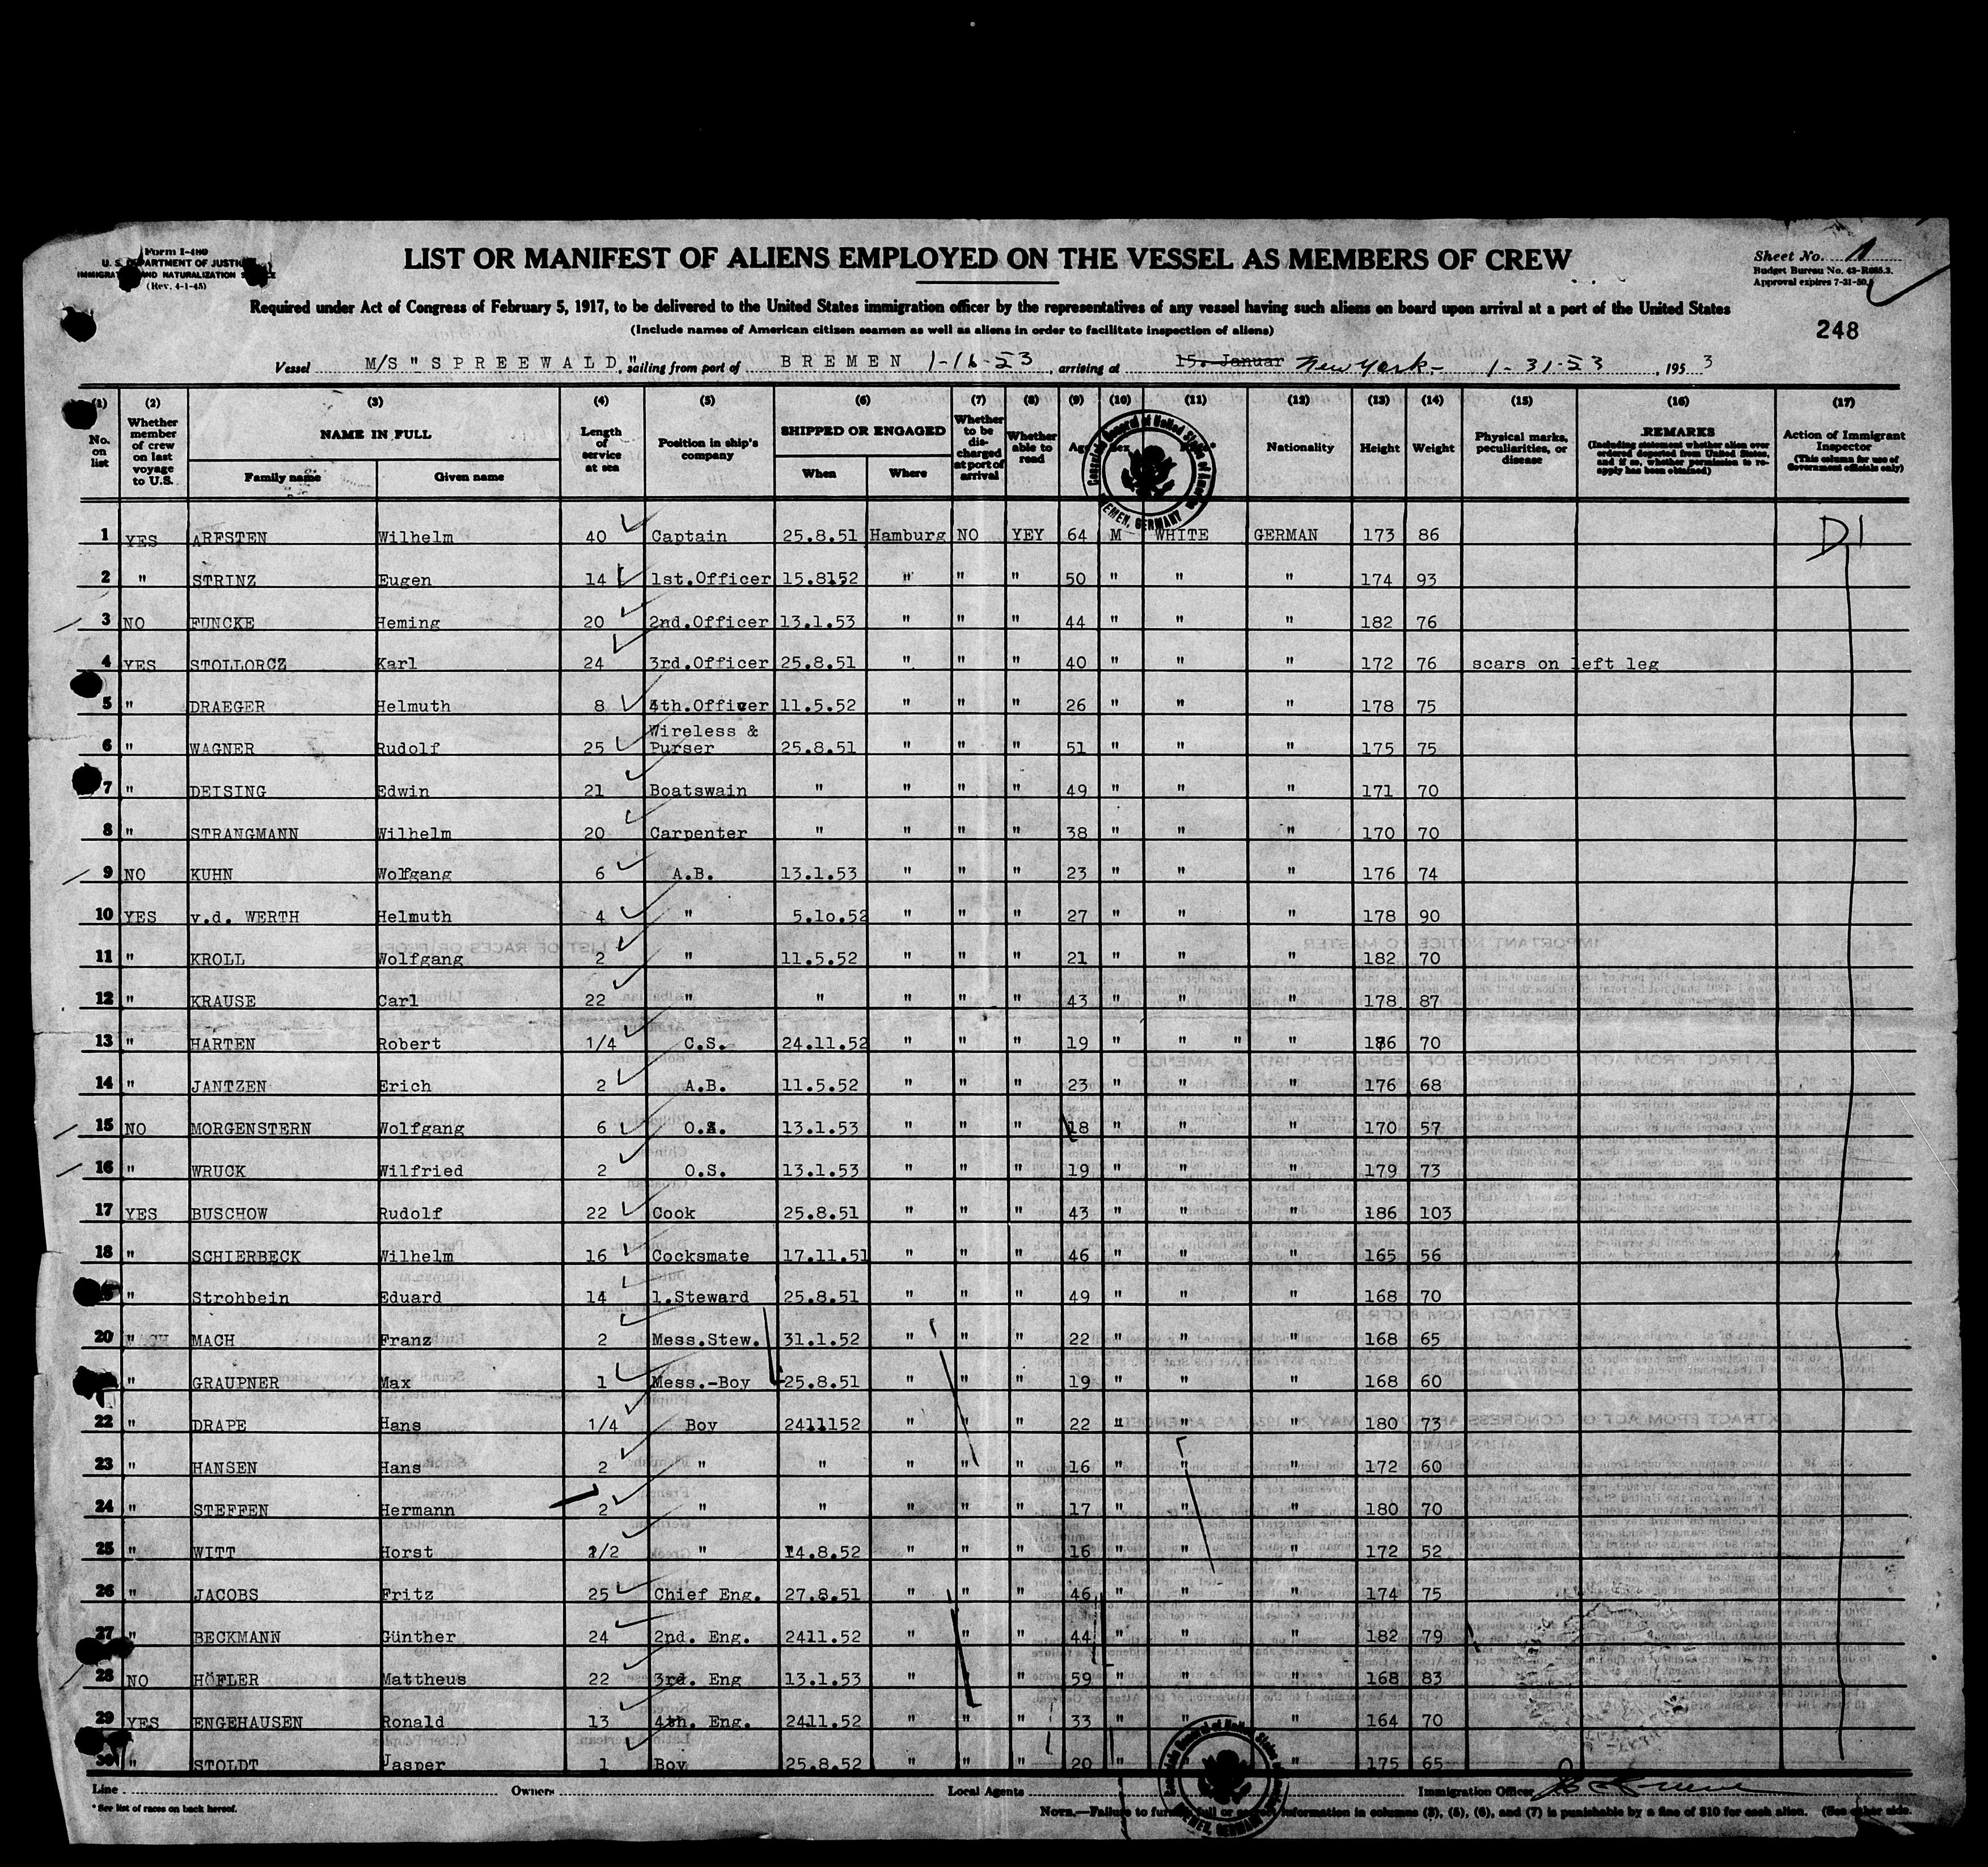 Form I-489
U. S. DEPARTMENT OF JUSTICE
IMMIGRATION AND NATURALIZATION SERVICE
(Rev. 4-1-45)
LIST OR MANIFEST OF ALIENS EMPLOYED ON THE VESSEL AS MEMBERS OF CREW
Sheet No. 1
Budget Bureau No. 43-R065.3.
Approval expires 7-31-50.
Required under Act of Congress of February 5, 1917, to be delivered to the United States immigration officer by the representatives of any vessel having such aliens on board upon arrival at a port of the United States
(Include names of American citizen seamen as well as aliens in order to facilitate inspection of aliens)
248
Vessel M/S "SPREEWALD", sailing from port of BREMEN 1-16-53, arriving at 15. Januar New York - 1-31-53, 1953
(1) (2) (3) (4) (5) (6) (7) (8) (9) (10) (11) (12) (13) (14) (15) (16) (17)
No. on list
Whether member of crew on last voyage to U.S.
NAME IN FULL
Family name
Given name
Length of service at sea
Position in ship's company
SHIPPED OR ENGAGED
When
Where
Whether to be discharged at port of arrival
Whether able to read
Age
Sex
Nationality
Height
Weight
Physical marks, peculiarities, or disease
REMARKS
(Including statement whether alien ever ordered deported from United States, and if so, whether permission to reapply has been obtained)
Action of Immigrant Inspector
(This column for use of Government officials only)
Consulate General of United States of America
BREMEN, GERMANY
1 YES ARFSTEN Wilhelm 40 Captain 25.8.51 Hamburg NO YEY 64 M WHITE GERMAN 173 86 D1
2 " STRINZ Eugen 14 1st.Officer 15.8152 " " " 50 " " " 174 93
3 NO FUNCKE Heming 20 2nd.Officer 13.1.53 " " " 44 " " " 182 76
4 YES STOLLORCZ Karl 24 3rd.Officer 25.8.51 " " " 40 " " " 172 76 scars on left leg
5 " DRAEGER Helmuth 8 4th.Officer 11.5.52 " " " 26 " " " 178 75
6 " WAGNER Rudolf 25 Wireless & Purser 25.8.51 " " " 51 " " " 175 75
7 " DEISING Edwin 21 Boatswain " " " " 49 " " " 171 70
8 " STRANGMANN Wilhelm 20 Carpenter " " " " 38 " " " 170 70
9 NO KUHN Wolfgang 6 A.B. 13.1.53 " " " 23 " " " 176 74
10 YES v.d. WERTH Helmuth 4 " 5.10.52 " " " 27 " " " 178 90
11 " KROLL Wolfgang 2 " 11.5.52 " " " 21 " " " 182 70
12 " KRAUSE Carl 22 " " " " " 43 " " " 178 87
13 " HARTEN Robert 1/4 C.S. 24.11.52 " " " 19 " " " " 70
14 " JANTZEN Erich 2 A.B. 11.5.52 " " " 23 " " " 176 68
15 NO MORGENSTERN Wolfgang 6 13.1.53 " " " 18 " " " 170 57
16 " WRUCK Wilfried 2 O.S. 13.1.53 " " " 19 " " " 179 73
17 YES BUSCHOW Rudolf 22 Cook 25.8.51 " " " 43 " " " 186 103
18 " SCHIERBECK Wilhelm 16 Cocksmate 17.11.51 " " " 46 " " " 165 56
" Strohbein Eduard 14 1.Steward 25.8.51 " " " 49 " " " 168 70
20 " MACH Franz 2 Mess.Stew. 31.1.52 " " " 22 " " " 168 65
" GRAUPNER Max 1 Mess.-Boy 25.8.51 " " " 19 " " " 168 60
22 " DRAPE Hans 1/4 Boy 2411152 " " " 22 " " " 180 73
23 " HANSEN Hans 2 " " " " " 16 " " " 172 60
24 " STEFFEN Hermann 2 " " " " " 17 " " " 180 70
25 " WITT Horst 1/2 " 14.8.52 " " " 16 " " " 172 52
26 " JACOBS Fritz 25 Chief Eng. 27.8.51 " " " 46 " " " 174 75
27 " BECKMANN Günther 24 2nd. Eng. 2411.52 " " " 44 " " " 182 79
28 NO HÖFLER Mattheus 22 3rd. Eng 13.1.53 " " " 59 " " " 168 83
29 YES ENGEHAUSEN Ronald 13 4th. Eng. 2411.52 " " " 33 " " " 164 70
30 " STOLDT Jasper 1 Boy 25.8.52 " " " 20 " " 175 65
Line Owners Local Agents Immigration Officer
* See list of races on back hereof.
NOTE.—Failure to furnish full or correct information in columns (3), (5), (6), and (7) is punishable by a fine of $10 for each alien. (See other side.